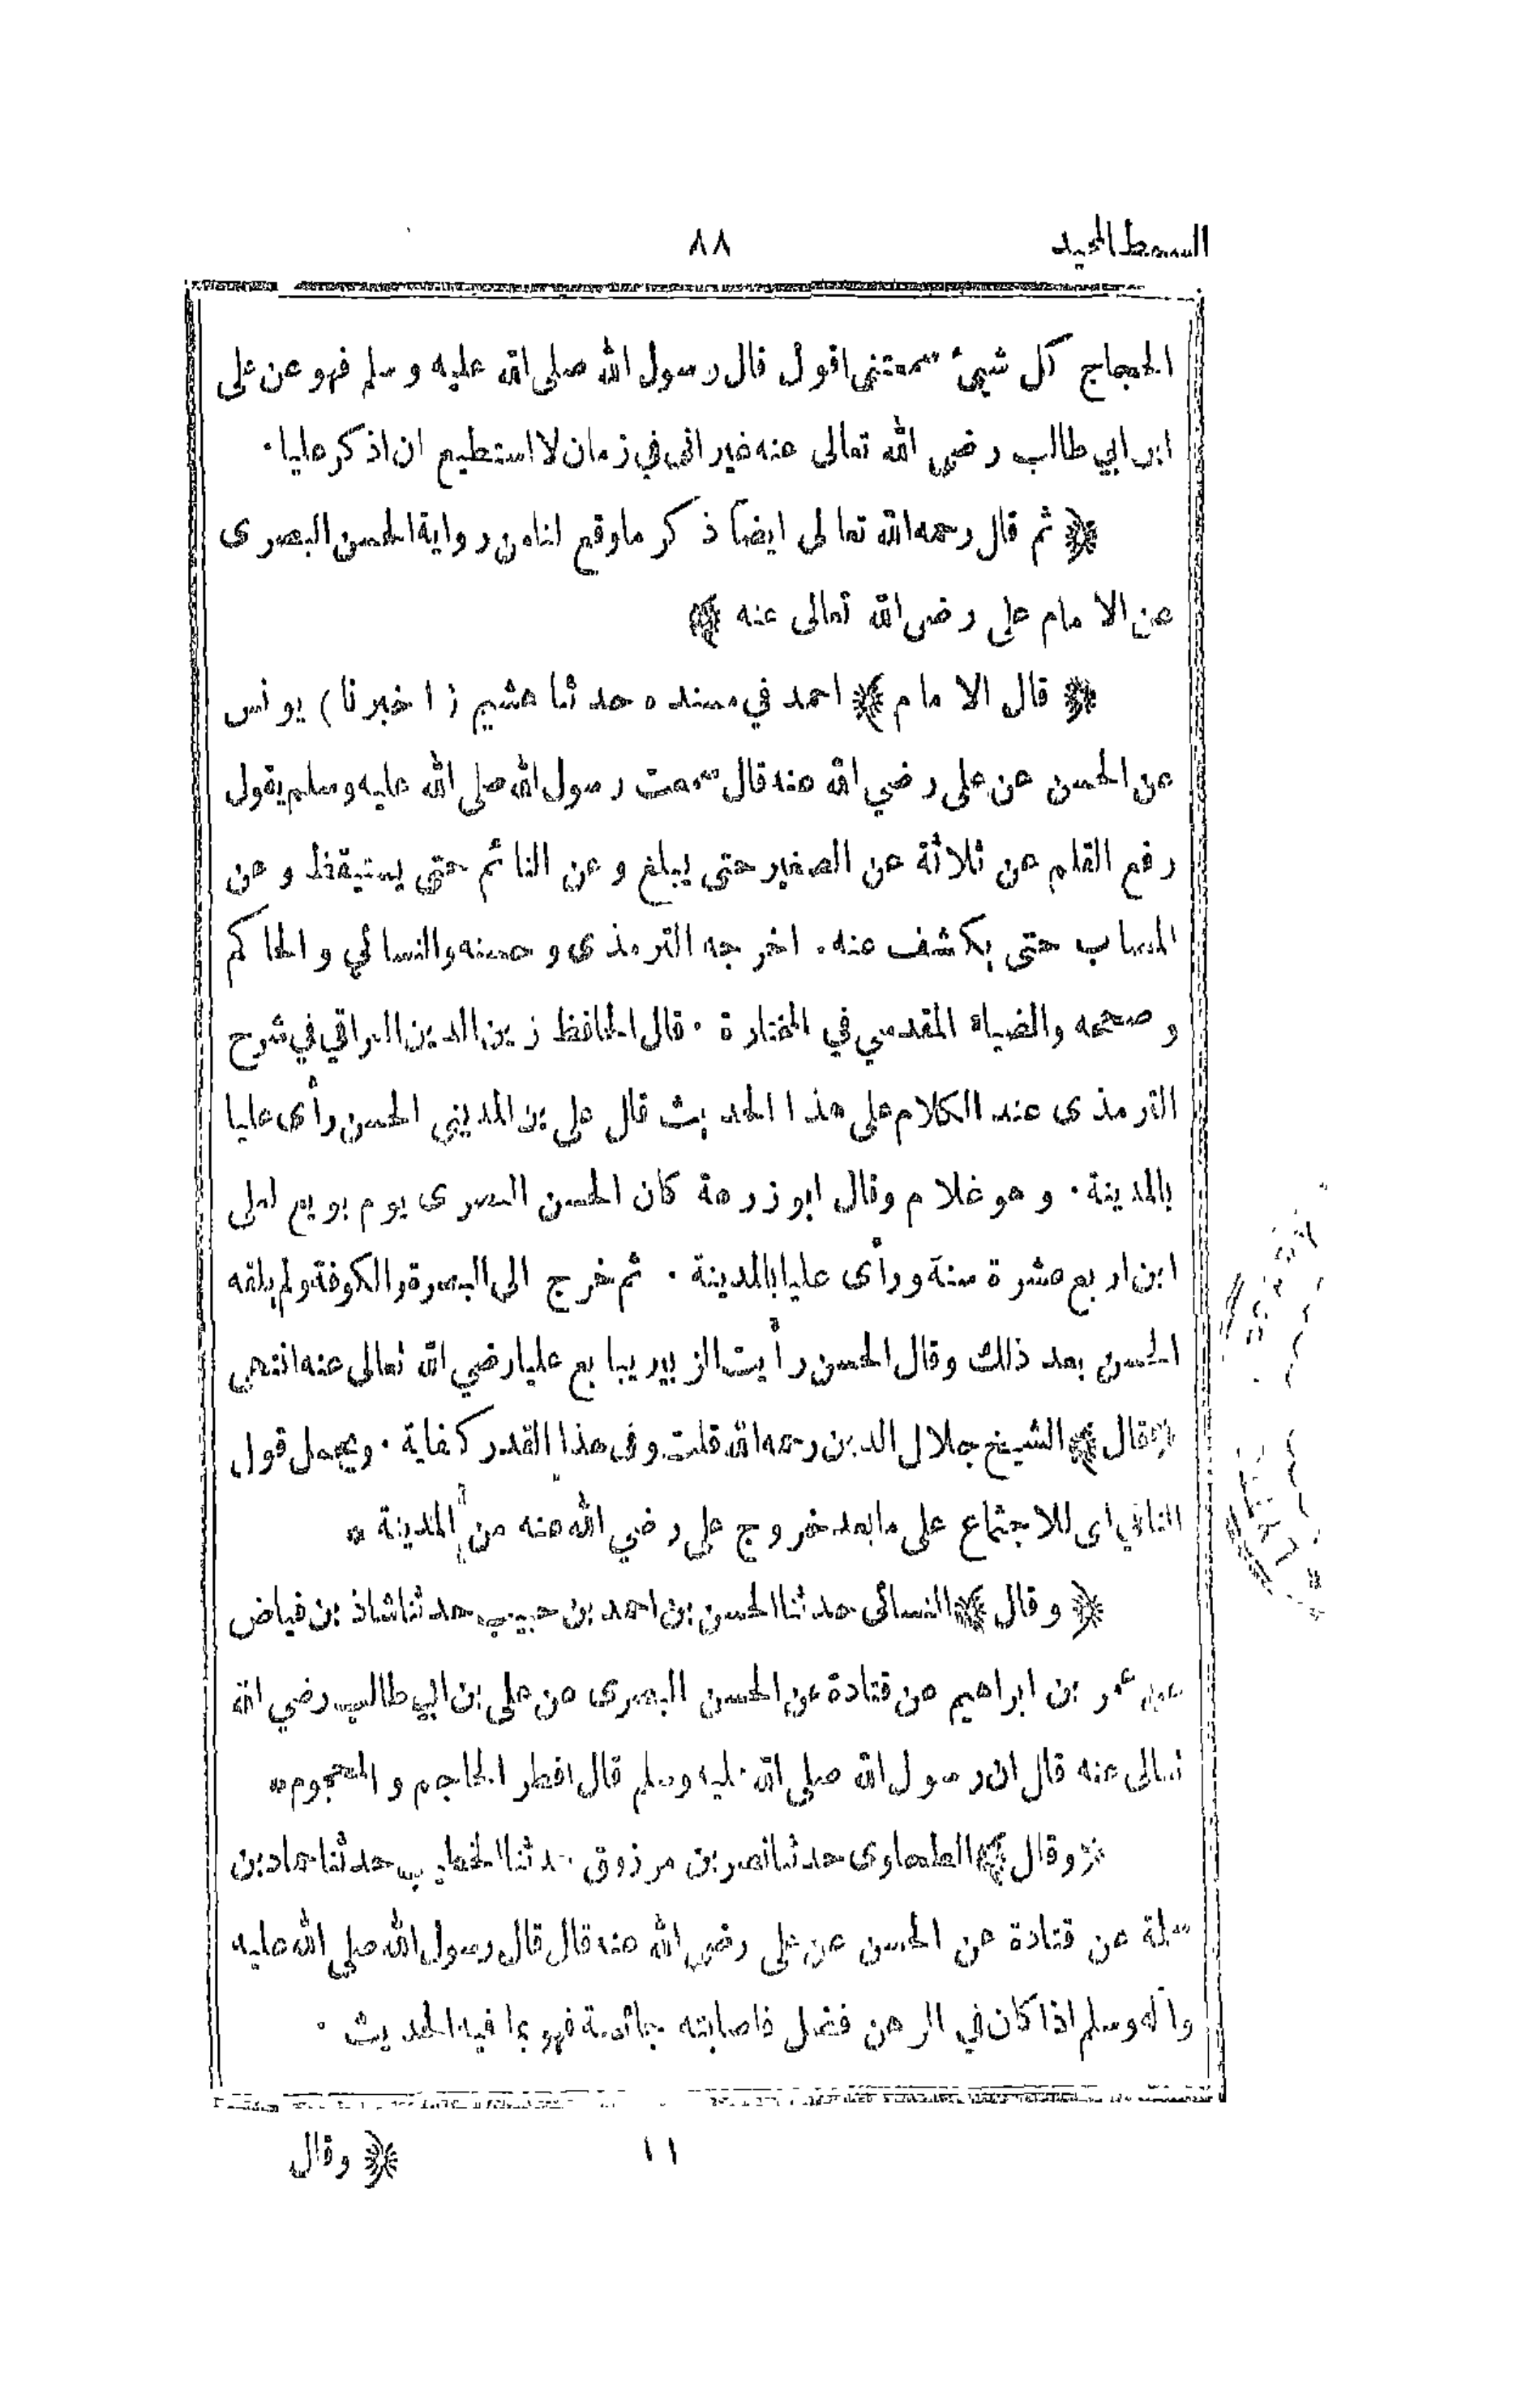 السمط المجيد
٨٨
الحجاج كل شيئ سمعتنى اقول قال رسول الله صلى الله عليه وسلم فهو عن على
ابن ابي طالب رضى الله تعالى عنه غير انى في زمان لا استطيع ان اذكر عليا ٠
﴿ ثم قال رحمه الله تعالى ايضاً ذكر ما وقع لنا من رواية الحسن البصرى
عن الامام على رضى الله تعالى عنه ﴾
﴿ قال الامام ﴾ احمد في مسنده حدثنا هشيم ( اخبرنا ) يونس
عن الحسن عن على رضي الله عنه قال سمعت رسول الله صلى الله عليه وسلم يقول
رفع القلم عن ثلاثة عن الصغير حتى يبلغ وعن النائم حتى يستيقظ وعن
المصاب حتى يكشف عنه ٠ اخرجه الترمذى وحسنه والنسائي والحاكم
وصححه والضياء المقدسي في المختارة ٠ قال الحافظ زين الدين العراقي في شرح
الترمذى عند الكلام على هذا الحديث قال على بن المديني الحسن رأى عليا
بالمدينة ٠ وهو غلام وقال ابو زرعة كان الحسن البصرى يوم بويع لعلى
ابن اربع عشرة سنة ورأى عليا بالمدينة ٠ ثم خرج الى البصرة والكوفة ولم يلقه
الحسن بعد ذلك وقال الحسن رأيت الزبير يبايع عليا رضي الله تعالى عنه انتهى
﴿ قال ﴾ الشيخ جلال الدين رحمه الله قلت وفى هذا القدر كفاية ٠ ويحمل قول
النافي اى للاجتماع على ما بعد خروج على رضي الله عنه من المدينة *
﴿ وقال ﴾ النسائى حدثنا الحسن بن احمد بن حبيب حدثنا شاذ بن فياض
عن عمر بن ابراهيم عن قتادة عن الحسن البصرى عن على بن ابي طالب رضي الله
تعالى عنه قال ان رسول الله صلى الله عليه وسلم قال افطر الحاجم والمحجوم *
﴿ وقال ﴾ الطحاوى حدثنا نصر بن مرزوق حدثنا الخطيب حدثنا حماد بن
سلمة عن قتادة عن الحسن عن على رضى الله عنه قال قال رسول الله صلى الله عليه
وآله وسلم اذا كان في الرهن فضل فاصابته جائحة فهو بما فيه الحديث ٠
١١
﴿ وقال